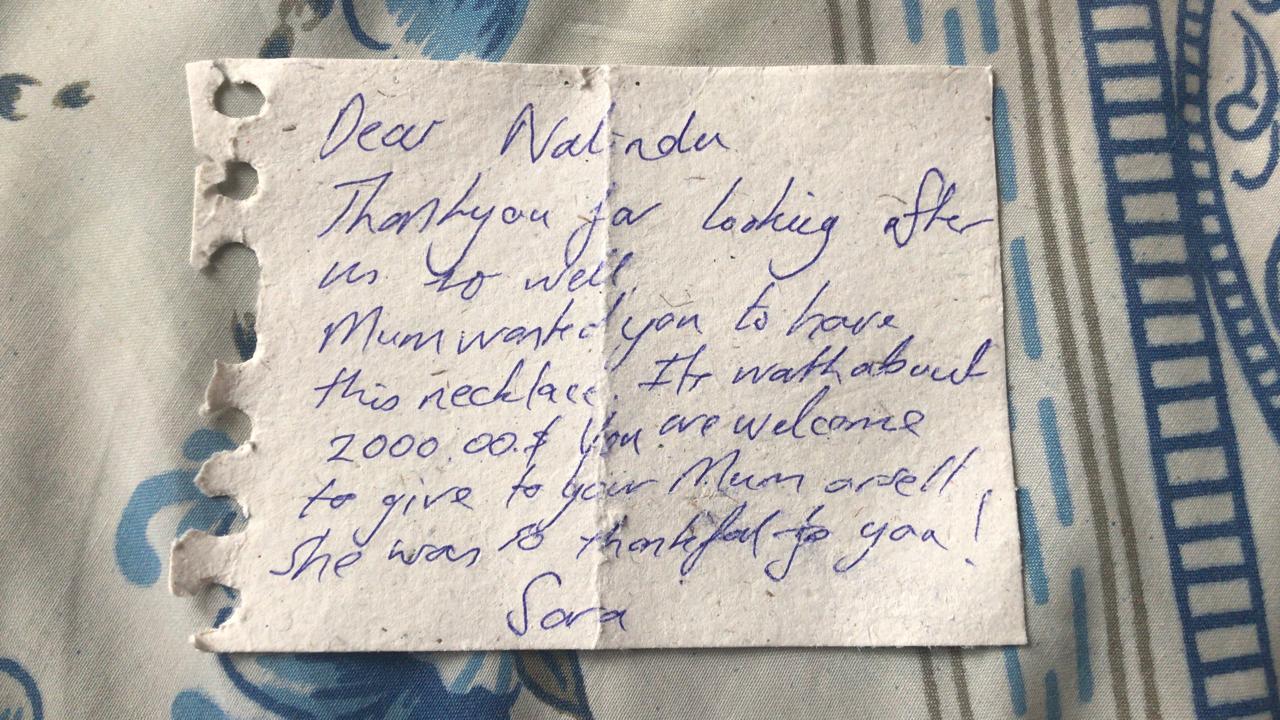 Dear Nalinda
Thankyou for looking after
us so well.
Mum wanted you to have
this necklace. Its worth about
2000.00.$ You are welcome
to give to your Mum or sell
She was so thankful to you!
Sara